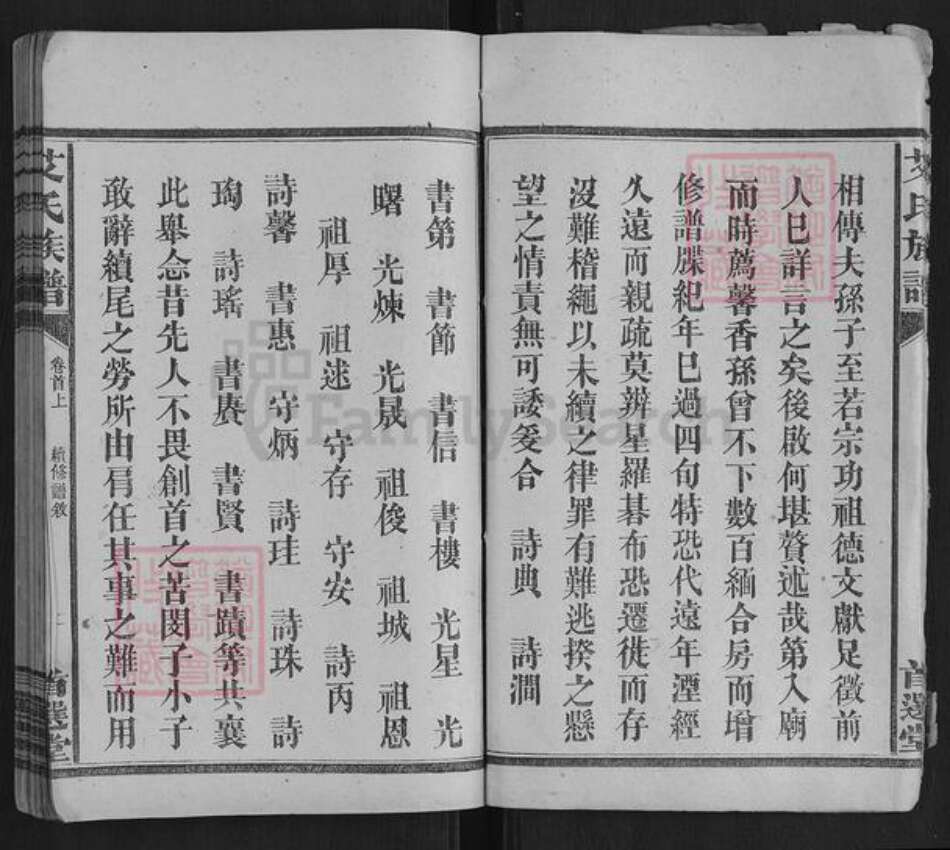 相傳夫孫子至若宗功祖德文獻足徵前
人巳詳言之矣後啟何堪贅述哉第入廟
而時薦馨香孫曾不下數百緬合房而增
修譜牒紀年巳過四旬特恐代遠年湮經
久遠而親疏莫辨星羅碁布恐遷徙而存
沒難稽繩以未續之律罪有難逃揆之懸
望之情責無可諉爰合 詩典 詩澗
書第 書節 書信 書樓 光星 光
曙 光煉 光晟 祖俊 祖城 祖恩
祖厚 祖述 守存 守安 詩丙
詩馨 書惠 守炳 詩珪 詩珠 詩
珣 詩瑤 書賡 書賢 書蹟等共襄
此舉念昔先人不畏創首之苦閔子小子
敢辭續尾之勞所由肩任其事之難而用
艾氏族譜 卷首上 續修譜敘 首選堂
FamilySearch